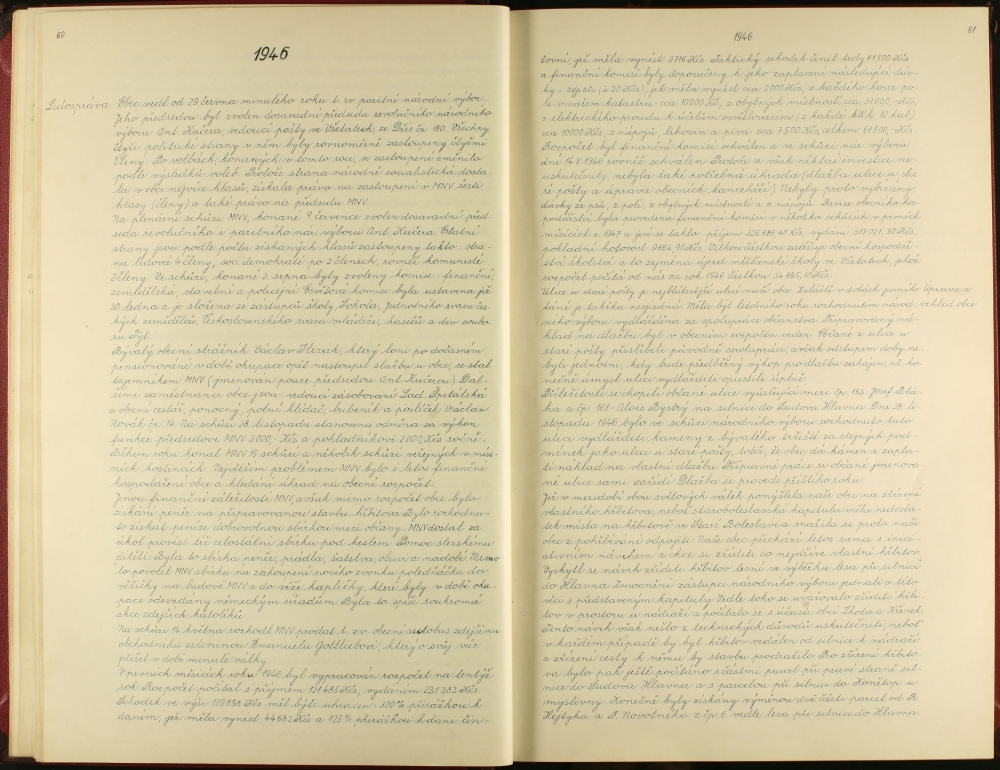 60
1946
Lidospráva Obec vedl od 29. června minulého roku t. zv. paritní národní výbor.
Jeho předsedou byl zvolen dosavadní předseda revolučního národního
výboru Ant. Kučera, vedoucí pošty ve Všetatech, ze Dřís čp. 180. Všechny
čtyři politické strany v něm byly rovnoměrně zastoupeny čtyřmi
členy. Po volbách, konaných v tomto roce, se zastoupení změnilo
podle výsledků voleb. Protože strana národně socialistická dosta-
la v obci nejvíce hlasů, získala právo na zastoupení v MNV šesti
hlasy (členy) a také právo na předsedu MNV.
Na plenární schůzi MNV, konané 9. července zvolen dosavadní před-
seda revolučního i paritního nár. výboru Ant. Kučera. Ostatní
strany jsou podle počtu získaných hlasů zastoupeny takto: stra-
na lidová 4 členy, soc. demokraté po 2 členech, rovněž komunisté
2 členy. Ve schůzi, konané 2. srpna byly zvoleny komise: finanční,
zemědělská, stavební a policejní. Osvětová komise byla ustavena již
30. ledna a je složena ze zástupců školy, Sokola, Jednotného svazu čes-
kých zemědělců, Československého svazu mládeže, hasičů a div. soubo-
ru Tyl.
Bývalý obecní strážník Václav Slezák, který loni po dočasném
pensionování v době okupace opět nastoupil službu u obce, se stal
tajemníkem MNV (jmenován pouze předsedou Ant. Kučerou). Dal-
šími zaměstnanci obce jsou: vedoucí zásobování Lad. Špitálská
a obecní cestář, ponocný, polní hlídač, bubeník a poslíček Václav
Novák čp. 14. Na schůzi 28. listopadu stanovena odměna za výkon
funkce předsedovi MNV 3000,- Kčs a pokladníkovi 2000 Kčs ročně.
Během roku konal MNV 15 schůzí a několik schůzí veřejných v míst-
ních hostincích. Největším problémem MNV bylo i letos finanční
hospodaření obce a hledání úhrad na obecní rozpočet.
Jinou finanční záležitostí MNV, avšak mimo rozpočet obce bylo
získání peněz na připravovanou stavbu hřbitova. Bylo rozhodnu-
to získat peníze dobrovolnou sbírkou mezi občany. MNV dostal za
úkol provést též celostátní sbírku pod heslem Pomoc slezskému
dítěti. Byla to sbírka peněz, prádla, šatstva, obuvi a nádobí. Mimo
to povolil MNV sbírku na zakoupení nového zvonku poledňáčku do
věžičky na budově MNV a do věže kapličky, které byly v době oku-
pace odevzdány německým úřadům. Byla to spíše soukromá
akce zdejších katolíků.
Na schůzi 14. května rozhodl MNV prodat t. zv. obecní autobus zdejšímu
obchodníku zeleninou Emanuelu Gottliebovi, který o svůj vůz
přišel v době minulé války.
V prvních měsících roku 1946 byl vypracován rozpočet na tentýž
rok. Rozpočet počítal s příjmem 121.485 Kčs, vydáním 231.383 Kčs.
Schodek ve výši 109.898 Kčs měl býti uhrazen: 300% přirážkou k
daním, jež měla vynést 44.682 Kčs a 125% přirážkou k dani čin-
1946
61
žovní, jež měla vynést 3716 Kčs. Faktický schodek činil tedy 61.500 Kčs
a finanční komisí byly doporučeny k jeho zaplacení následující dáv-
ky: z psů (à 20 Kčs), jež měla vynést cca 2000 Kčs, z každého kora po-
le v našem katastru cca 10000 Kč, z obytných místností cca 32000,- Kčs,
z elektrického proudu k účelům osvětlovacím (z každé kW.h. 10 hal.)
cca 10000 Kčs, z nápojů, lihovin a piva cca 7500 Kčs, celkem 61500,- Kčs
Rozpočet byl finanční komisí schválen a ve schůzi nár. výboru
dne 14. V. 1946 rovněž schválen. Protože se však některé investice ne-
uskutečnily, nebyla také potřebná úhrada (dlažba ulice u sta-
ré pošty a úprava obecních kanceláří). Nebyly proto vybírány
dávky ze psů, z polí, z obytných místností a z nápojů. Revise obecního hos-
podářství byla provedena finanční komisí v několika schůzích v prvních
měsících r. 1947 a jeví se takto: příjem 526.686,40 Kčs, vydání 517.021,50 Kčs,
pokladní hotovost 9664,90 Kčs. Velkou částkou zatěžuje obecní hospodář-
ství školství a to zejména újezd měšťanské školy ve Všetatech, jehož
rozpočet počítá od nás za rok 1946 částkou 34.885,10 Kčs.
Ulice u staré pošty je nejblátivější ulicí naší obce. Zvláště v dobách jarního Úprava a
tání je takřka nesjízdná. Měla být letošního roku rozhodnutím národ- vzhled obce
ního výboru vydlážděna za spolupráce občanstva. Připravovaný ná-
klad na dlažbu byl v obecním rozpočtu veden. Občané z ulice u
staré pošty přislíbili původně spolupráci, avšak odstupem doby ne-
byli jednotni, kdy bude předběžný výkop pro dlažbu zahájen, až ko-
nečně úmysl ulici vydlážditi opustili úplně.
Příležitosti se chopili občané ulice vyúsťující mezi čp. 153 - Josef Plá-
ha a čp. 161 - Alois Bystrý na silnici do Sudova Hlavna. Dne 28. li-
stopadu 1946 bylo ve schůzi národního výboru rozhodnuto tuto
ulici vydlážditi kameny z bývalého tržiště za stejných pod-
mínek jako ulici u staré pošty, totiž, že obec dá kámen a zapla-
tí náklad na vlastní dlažbu. Přípravné práce si občané jmenova-
né ulice sami zařídí. Dlažba se provede příštího roku.
Již v mezidobí obou světových válek pomýšlela naše obec na zřízení
vlastního hřbitova, neboť staroboleslavská kapitula měla nedosta-
tek místa na hřbitově ve Staré Boleslavi a snažila se proto naši
obec z pohřbívání odpojiti. Naše obec přichází letos sama s inici-
ativním návrhem a chce se zříditi co nejdříve vlastní hřbitov.
Vyskytl se návrh zříditi hřbitov lesní ve výběžku lesa při silnici
do Hlavna. Zmocnění zástupci národního výboru jednali o této
věci s představenými kapituly. Vedle toho se uvažovalo zříditi hřbi-
tov v prostoru u nádraží a počítalo se s účastí obcí Lhota a Křenek.
Tento návrh však nešlo z technických důvodů uskutečniti, neboť
v každém případě by byl hřbitov vzdálen od silnice k nádraží
a zřízení cesty k němu by stavbu podražilo. Pro zřízení hřbito-
va bylo pak ještě počítáno s částmi parcel při pravé straně sil-
nice do Sudova Hlavna a s parcelou při silnici do Konětop u
myslivny. Konečně byly získány výměnou dvě části parcel od R.
Hejtyka a F. Novotného z čp. 6 vedle lesa při silnici do Hlavna.